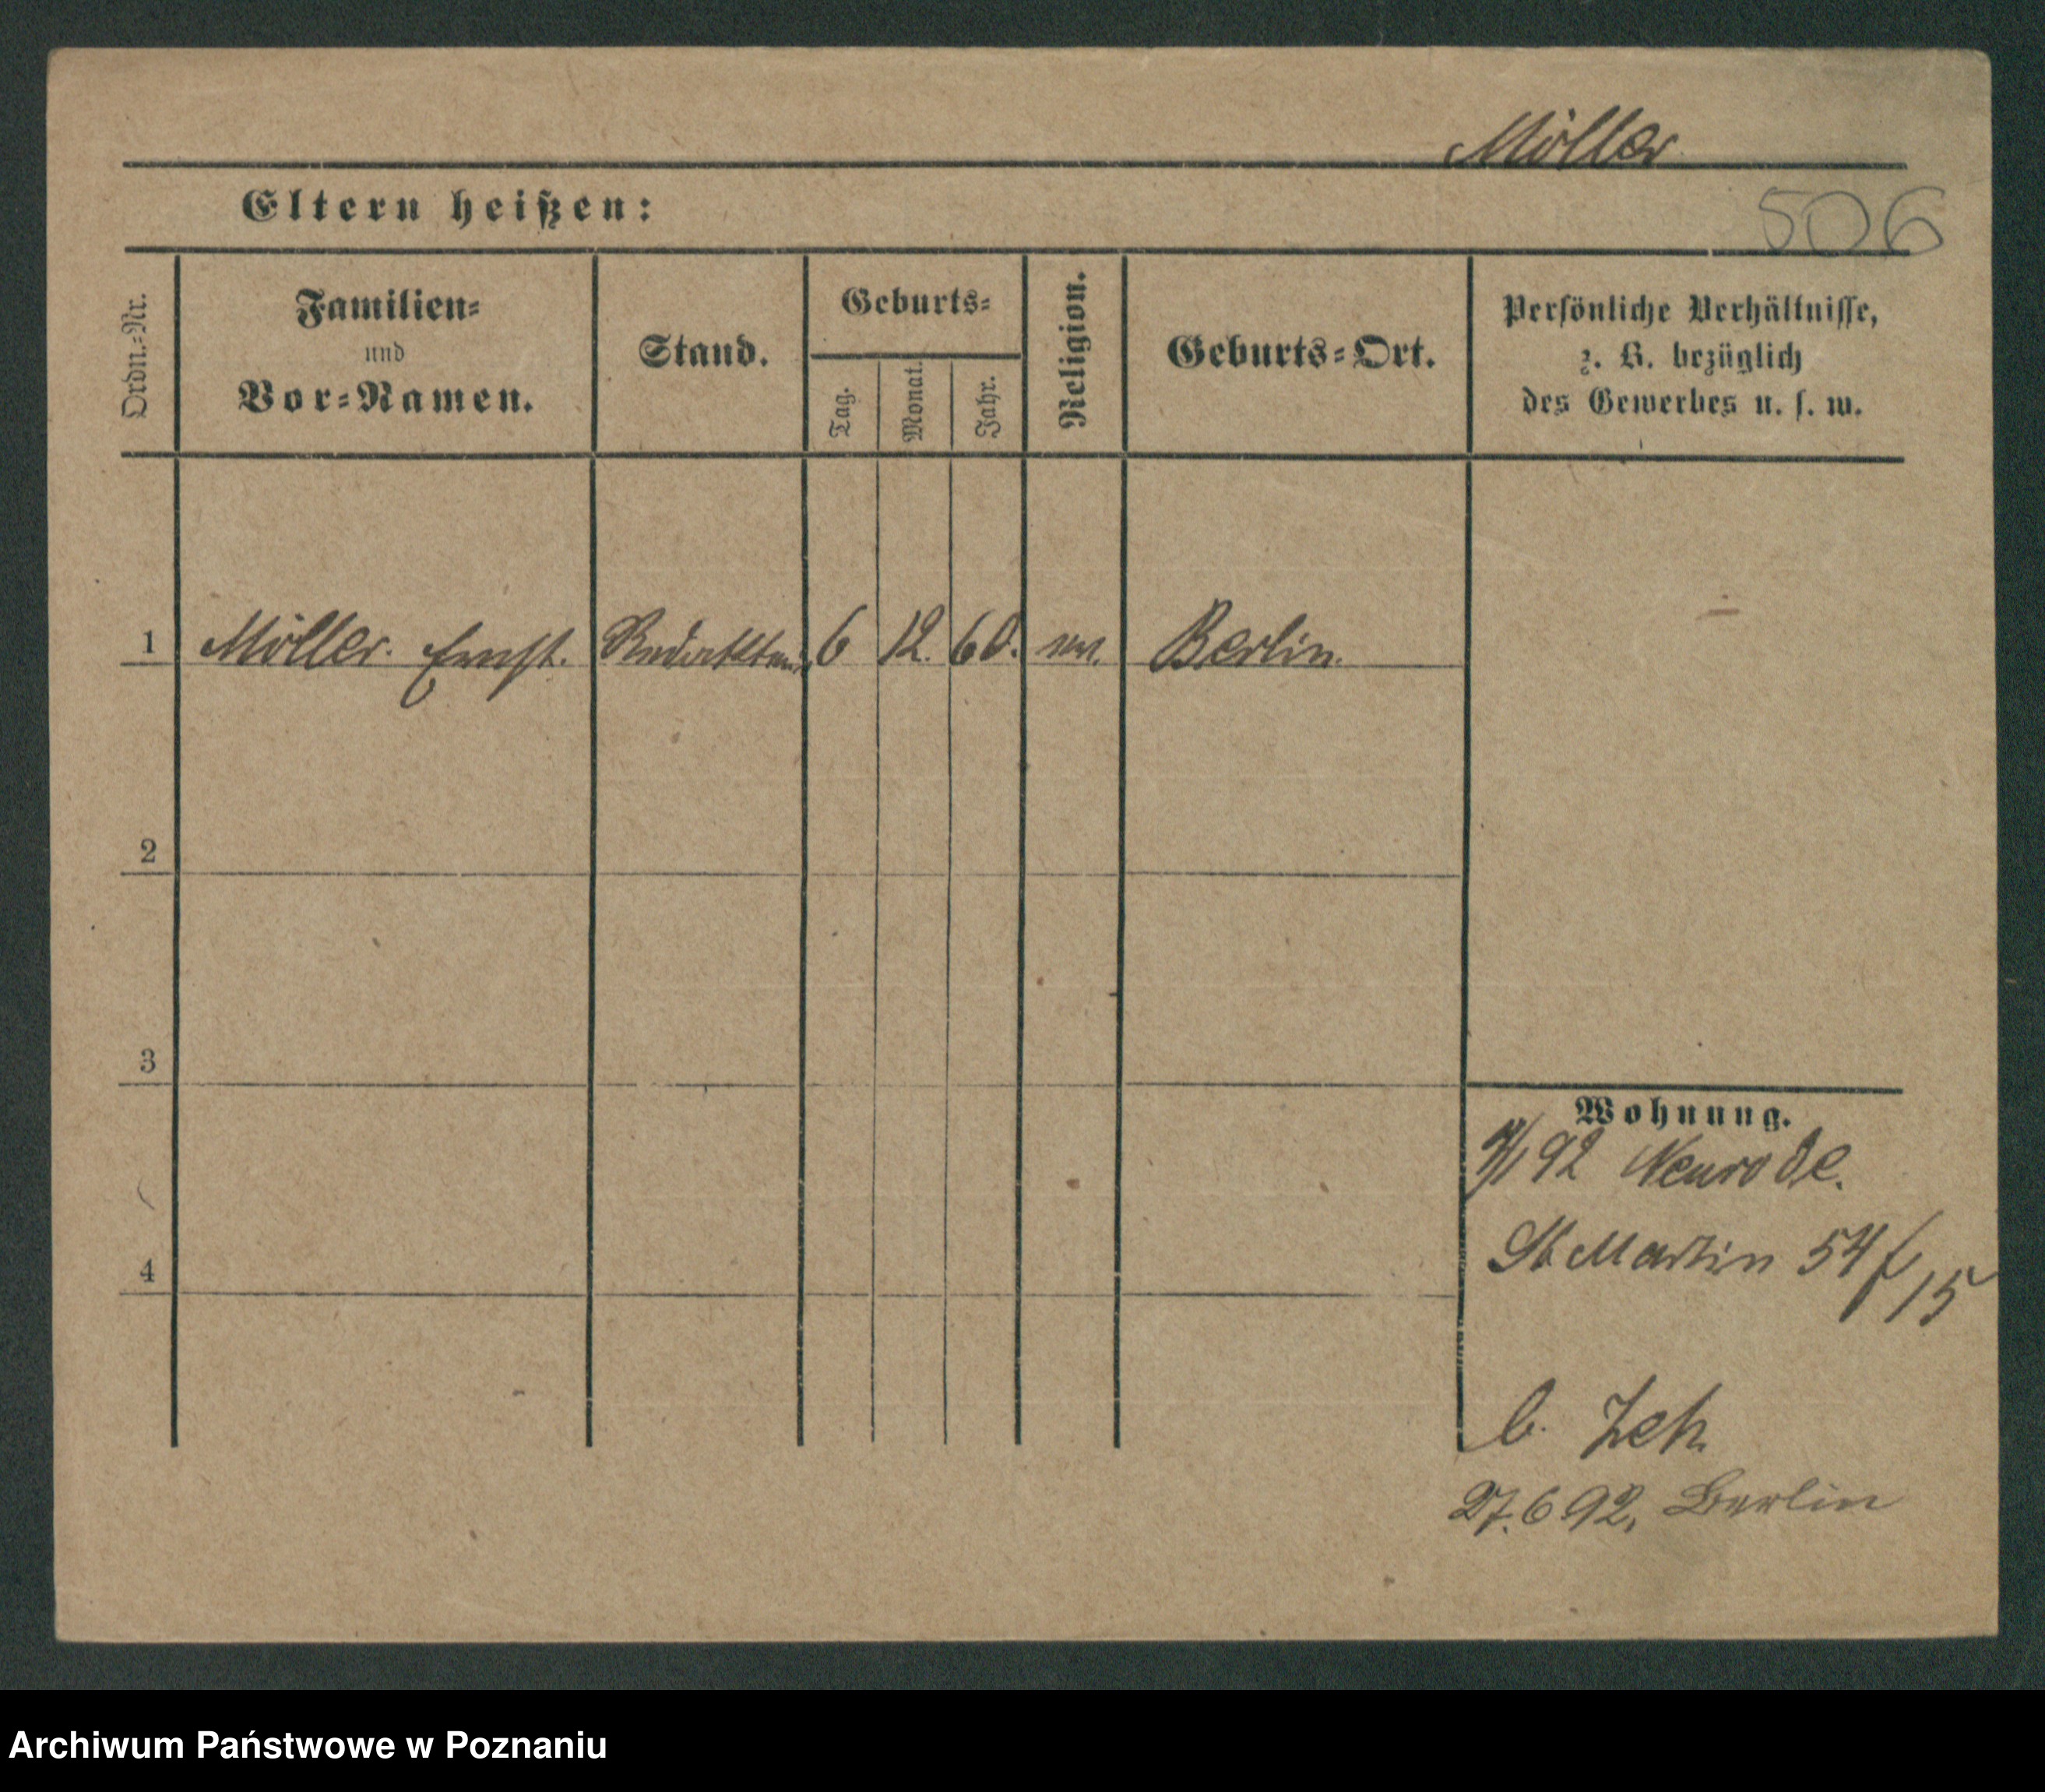 Möller
Eltern heißen:
506
Ordn.-Nr.
Familien-
und
Vor-Namen.
Stand.
Geburts-
Tag.
Monat.
Jahr.
Religion.
Geburts-Ort.
Persönliche Verhältnisse,
z. B. bezüglich
des Gewerbes u. s. w.
1 Möller Ernst. Redakteur 6 12. 60. Berlin.
2
3
4
Wohnung.
92 Neurode.
St Martin 54 f 15
b. Zeh
27.6.92, Berlin
Archiwum Państwowe w Poznaniu